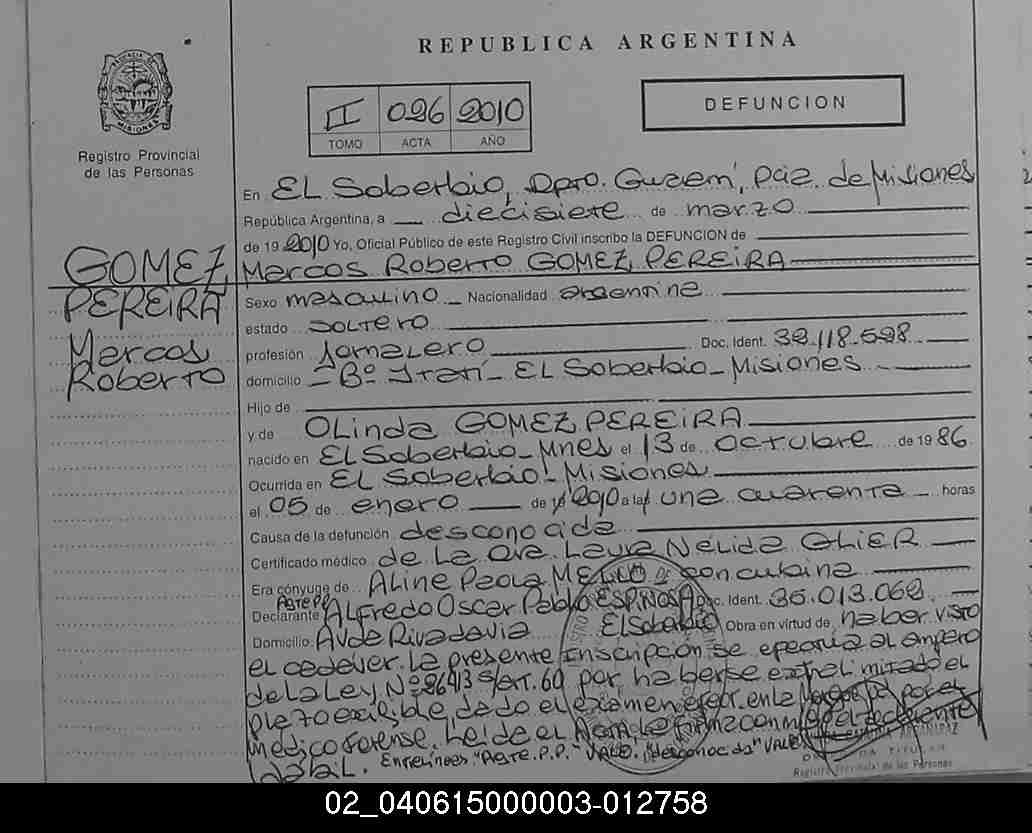 REPUBLICA ARGENTINA
PROVINCIA DE
MISIONES
Registro Provincial
de las Personas
II 026 2010
TOMO ACTA AÑO
DEFUNCION
En EL Soberbio, Dpto. Guaraní, Pcia. de Misiones
República Argentina, a diecisiete de marzo
de 19 2010 Yo, Oficial Público de este Registro Civil inscribo la DEFUNCION de
GOMEZ
PEREIRA
Marcos
Roberto
Marcos Roberto GOMEZ PEREIRA
Sexo masculino Nacionalidad argentina
estado soltero
profesión Jornalero Doc. Ident. 32.118.598
domicilio Bº Itatí - EL Soberbio - Misiones
Hijo de
y de OLinda GOMEZ PEREIRA
nacido en EL Soberbio - Mnes el 13 de octubre de 19 86
Ocurrida en EL Soberbio - Misiones
el 05 de enero de 19 2010 a las una cuarenta horas
Causa de la defunción desconocida
Certificado médico de La Dra. Laura Nelida GLIER
Era cónyuge de ALine Paola MELLO concubina
Agte P.P.
Declarante ALfredo Oscar Pablo ESPINOSA Doc. Ident. 35.013.068
Domicilio Avda Rivadavia EL Soberbio Obra en virtud de haber visto
el cadaver. La presente inscripción se efectua al amparo
de La Ley Nº 26413 s/art. 60 por haberse extralimitado el
plazo exigible, dado el examen efect. en la Morgue por el
médico forense. Leída el Acta La firma conmigo el declarante
Entrelineas "Agte. P.P." VALE. "desconocida" VALE
Registro Provincial de las Personas
02_040615000003-012758